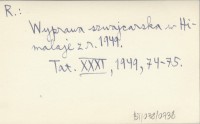 R.:
Wyprawa szwajcarska w Hi-
malaje z r. 1949.
Tat. XXXI, 1949, 74-75.